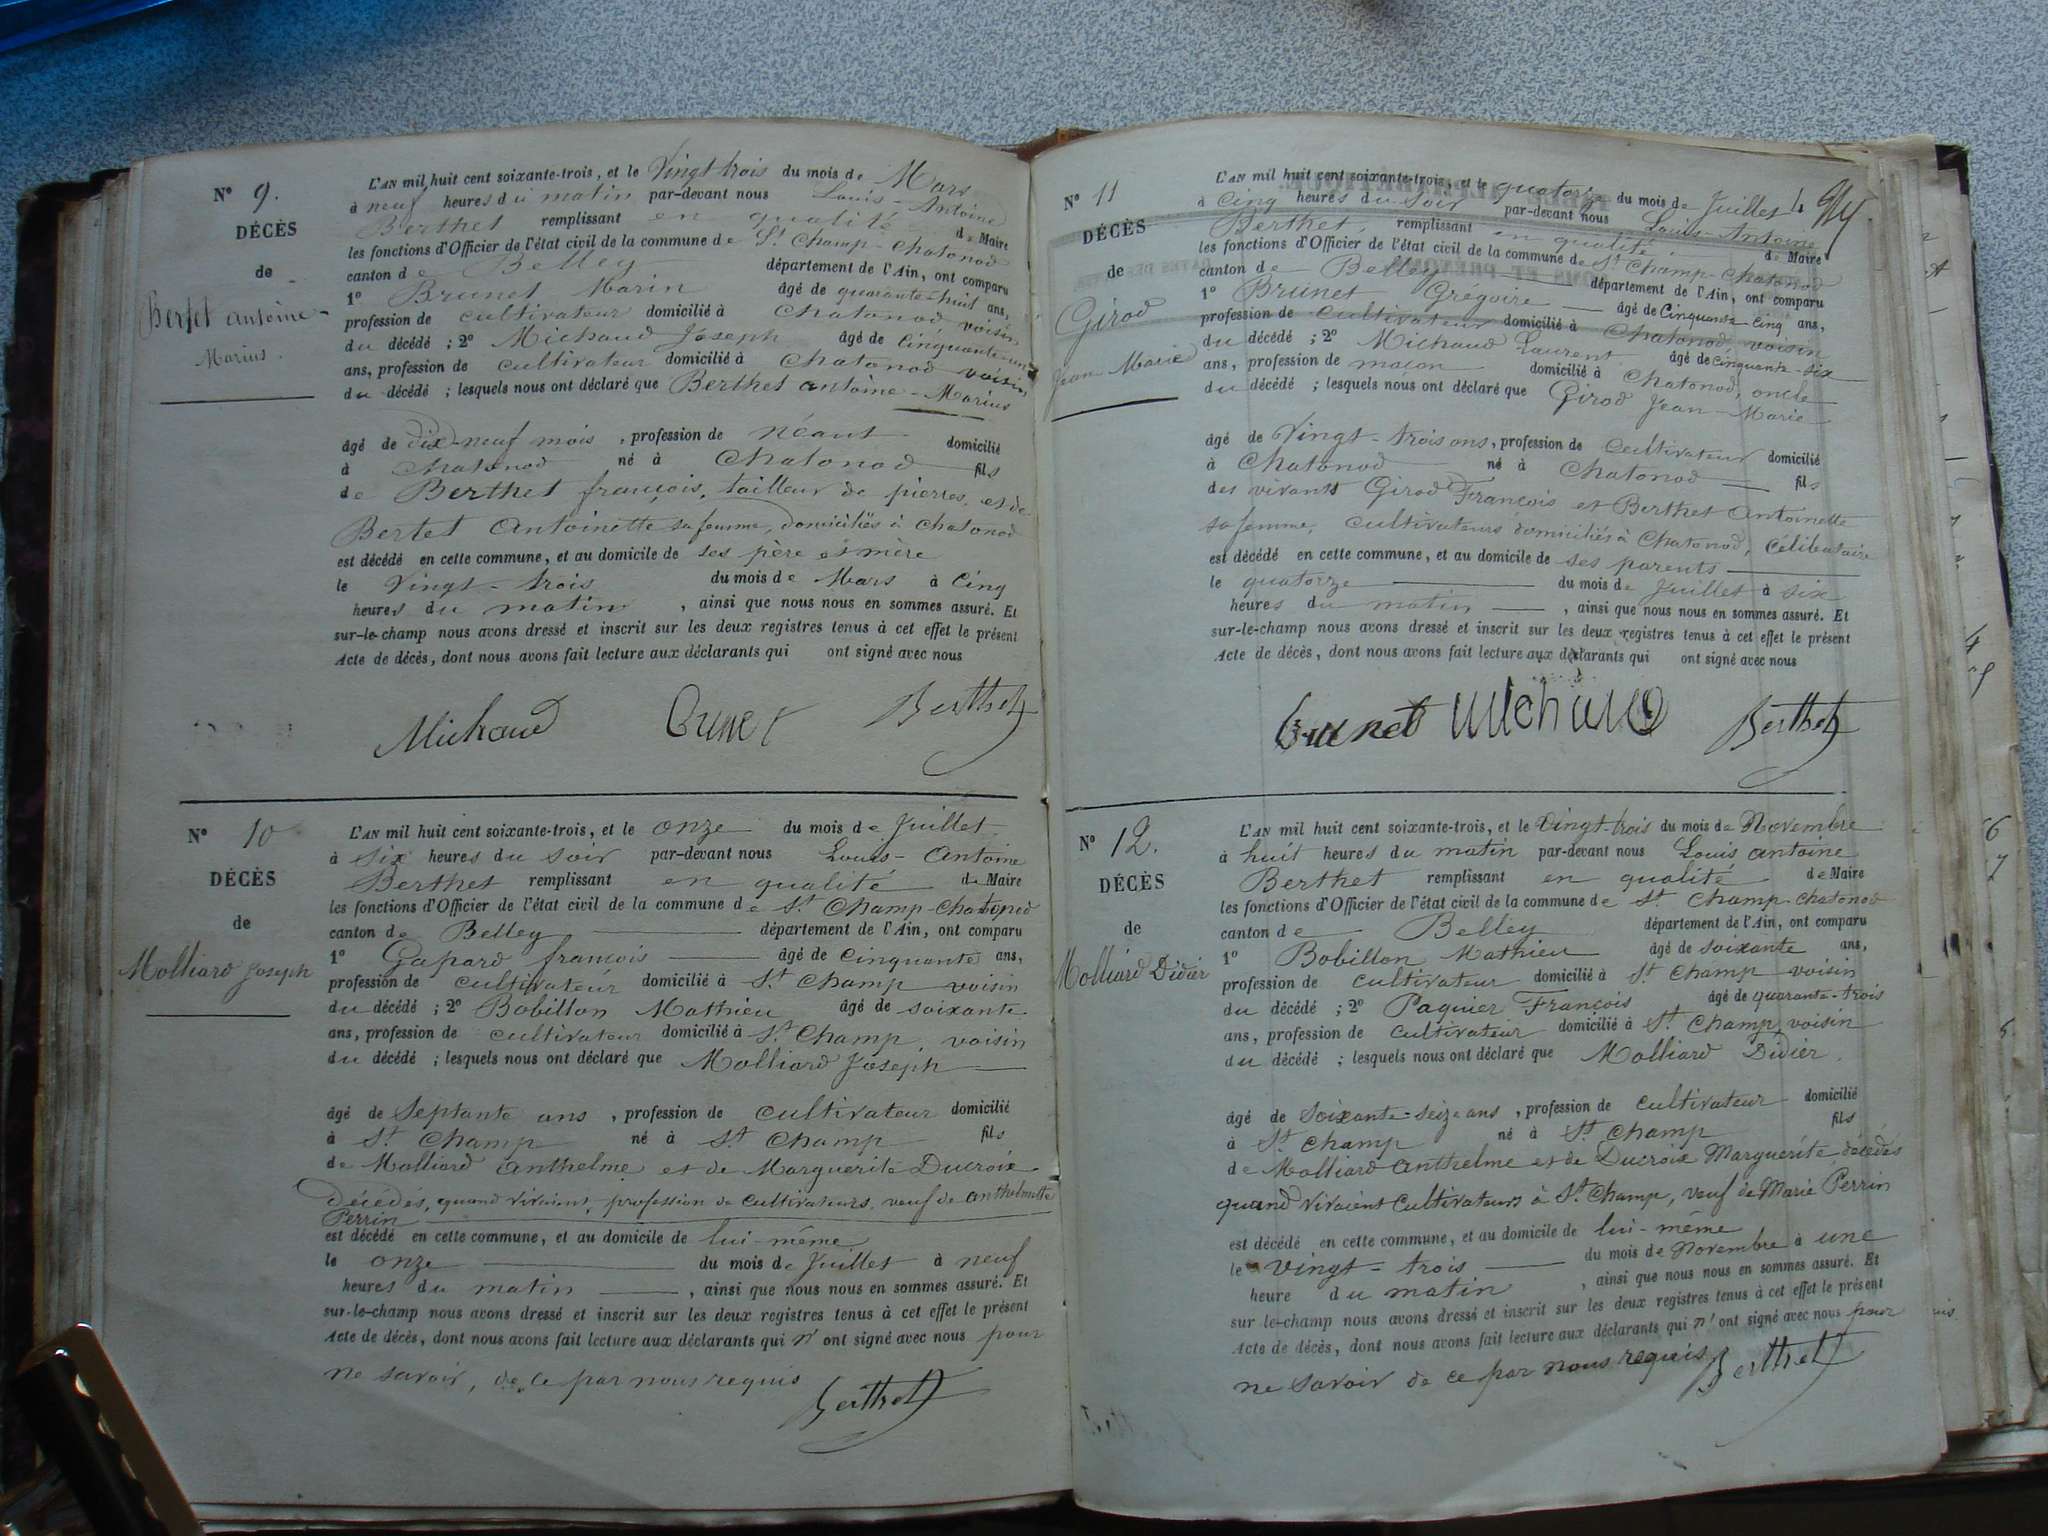 N° 9.
DÉCÈS
de
Berset antoine-
Marius.
L'AN mil huit cent soixante-trois, et le Vingt trois du mois de Mars
à neuf heures du matin par-devant nous Louis-Antoine
Berthet remplissant en qualité de Maire
les fonctions d'Officier de l'état civil de la commune de St Champ-Chatonod
canton de Belley département de l'Ain, ont comparu
1° Brunet Marin âgé de quarante-huit ans,
profession de cultivateur domicilié à Chatonod voisin
du décédé ; 2° Michaud Joseph âgé de cinquante un
ans, profession de cultivateur domicilié à Chatonod voisin
du décédé ; lesquels nous ont déclaré que Berthet antoine-Marius
âgé de dix-neuf mois, profession de néant domicilié
à Chatonod né à Chatonod fils
de Berthet françois, tailleur de pierres et de
Bertet Antoinette sa femme, domiciliés à Chatonod
est décédé en cette commune, et au domicile de ses père et mère
le Vingt-trois du mois de Mars à Cinq
heures du matin, ainsi que nous nous en sommes assuré. Et
sur-le-champ nous avons dressé et inscrit sur les deux registres tenus à cet effet le présent
Acte de décès, dont nous avons fait lecture aux déclarants qui ont signé avec nous
Michaud Brunet Berthet
N° 10
DÉCÈS
de
Molliard Joseph
L'AN mil huit cent soixante-trois, et le onze du mois de Juillet
à six heures du soir par-devant nous Louis-Antoine
Berthet remplissant en qualité de Maire
les fonctions d'Officier de l'état civil de la commune de St Champ-Chatonod
canton de Belley département de l'Ain, ont comparu
1° Gapard françois âgé de Cinquante ans,
profession de cultivateur domicilié à St Champ voisin
du décédé ; 2° Bobillon Mathieu âgé de soixante
ans, profession de cultivateur domicilié à St Champ, voisin
du décédé ; lesquels nous ont déclaré que Molliard Joseph
âgé de Septante ans, profession de cultivateur domicilié
à St Champ né à St Champ fils
de Molliard anthelme et de Marguerite Ducroix
Décédés, quand vivaient, profession de cultivateurs, veuf de anthelmette
Perrin
est décédé en cette commune, et au domicile de lui-même
le onze du mois de Juillet à neuf
heures du matin, ainsi que nous nous en sommes assuré. Et
sur-le-champ nous avons dressé et inscrit sur les deux registres tenus à cet effet le présent
Acte de décès, dont nous avons fait lecture aux déclarants qui n'ont signé avec nous pour
ne savoir, de ce par nous requis
Berthet
N° 11
DÉCÈS
de
Girod
Jean-Marie
L'AN mil huit cent soixante-trois, et le quatorze du mois de Juillet
à Cinq heures du soir par-devant nous Louis-Antoine
Berthet, remplissant en qualité de Maire
les fonctions d'Officier de l'état civil de la commune de St Champ-Chatonod
canton de Belley département de l'Ain, ont comparu
1° Brunet Grégoire âgé de Cinquante cinq ans,
profession de cultivateur domicilié à Chatonod voisin
du décédé ; 2° Michaud Laurent âgé de cinquante-six
ans, profession de maçon domicilié à Chatonod, oncle
du décédé ; lesquels nous ont déclaré que Girod Jean-Marie
âgé de Vingt-trois ans, profession de cultivateur domicilié
à Chatonod né à Chatonod fils
des vivants Girod François et Berthet Antoinette
sa femme, cultivateurs domiciliés à Chatonod, Célibataire
est décédé en cette commune, et au domicile de ses parents
le quatorze du mois de Juillet à six
heures du matin, ainsi que nous nous en sommes assuré. Et
sur-le-champ nous avons dressé et inscrit sur les deux registres tenus à cet effet le présent
Acte de décès, dont nous avons fait lecture aux déclarants qui ont signé avec nous
Brunet Michaud Berthet
N° 12.
DÉCÈS
de
Molliard Didier
L'AN mil huit cent soixante-trois, et le Vingt-trois du mois de Novembre
à huit heures du matin par-devant nous Louis antoine
Berthet remplissant en qualité de Maire
les fonctions d'Officier de l'état civil de la commune de St Champ-Chatonod
canton de Belley département de l'Ain, ont comparu
1° Bobillon Mathieu âgé de soixante ans,
profession de cultivateur domicilié à St Champ voisin
du décédé ; 2° Paquier François âgé de quarante-trois
ans, profession de cultivateur domicilié à St Champ, voisin
du décédé ; lesquels nous ont déclaré que Molliard Didier.
âgé de Soixante-seize ans, profession de cultivateur domicilié
à St Champ né à St Champ fils
de Molliard Anthelme et de Ducroix Marguérite décédés
quand vivaient cultivateurs à St Champ, veuf de Marie Perrin
est décédé en cette commune, et au domicile de lui-même
le vingt-trois du mois de Novembre à une
heure du matin, ainsi que nous nous en sommes assuré. Et
sur le-champ nous avons dressé et inscrit sur les deux registres tenus à cet effet le présent
Acte de décès, dont nous avons fait lecture aux déclarants qui n'ont signé avec nous pour
ne savoir de ce par nous requis
Berthet